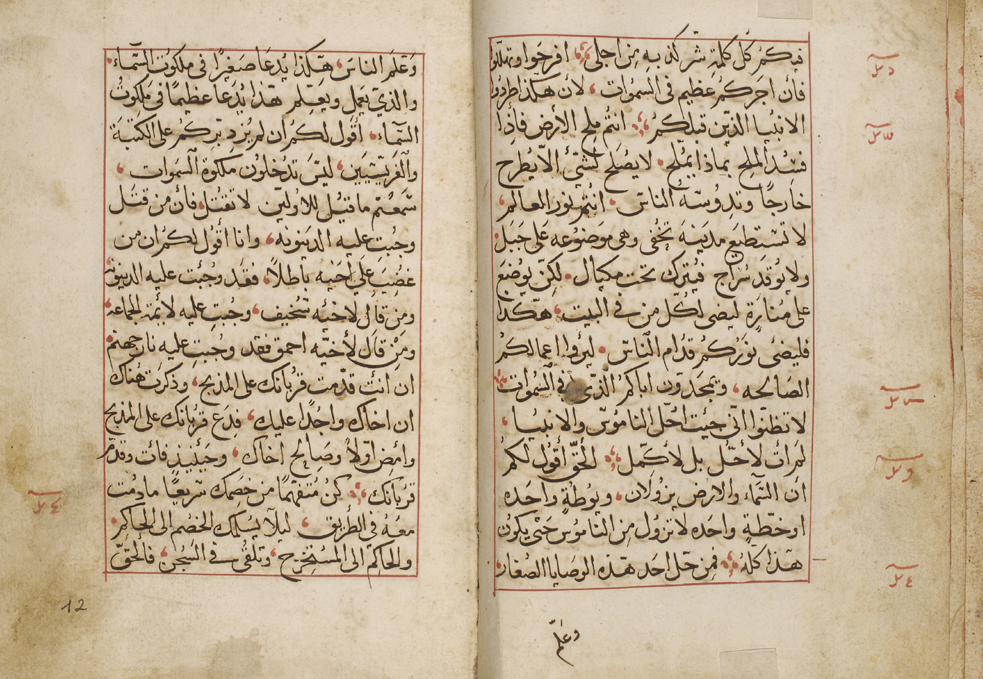 فيكم كل كلمة شر كذبه من اجلي افرحوا وتهللوا
فان اجركم عظيم في السموات لان هكذا طردوا
الانبيا الذين قبلكم انتم ملح الارض فاذا
فسد الملح بماذا يملح لا يصلح لشئ الا يطرح
خارجا وتدوسه الناس انتم نور العالم
لا تستطيع مدينه تخفى وهي موضوعه على جبل
ولا يوقد سراج فيترك تحت مكيال لكن يوضع
على منارة ليضى لكل من في البيت هكذا
فليضى نوركم قدام الناس ليروا اعمالكم
الصالحه ويمجدون اباكم الذي في السموات
لا تظنوا اني جيت احل الناموس والانبيا
لم ات لاحل بل لاكمل الحق اقول لكم
ان السما والارض يزولان ويوطة واحده
او خطة واحده لا تزول من الناموس حتى يكون
هذا كله فمن حل احد هذه الوصايا الصغار
وعلم
وعلم الناس هكذا يدعا صغيرا في ملكوت السماء
والذي يعمل ويعلم هذا يدعا عظيما في ملكوت
السماء اقول لكم ان لم يزد بركم على الكتبة
والفريسيين ليس تدخلون ملكوة السموات
سمعتم ما قيل للاولين لا تقتل فان من قتل
وجبت عليه الدينونه وانا اقول لكم ان من
غضب على اخيه باطلا فقد وجبت عليه الدينونه
ومن قال لاخيه سخيف وجبت عليه لايمة الجماعه
ومن قال لاخيه احمق فقد وجبت عليه نار جهنم
ان انت قدمت قربانك على المذبح وذكرت هناك
ان اخاك واجدا عليك فدع قربانك على المذبح
وامض اولا وصالح اخاك وحينيذ فات وقدم
قربانك كن متفهما من خصمك سريعا ما دمت
معه في الطريق ليلا يسلمك الخصم الى الحاكم
والحاكم الى المستخرج وتلقى في السجن فالحق
12